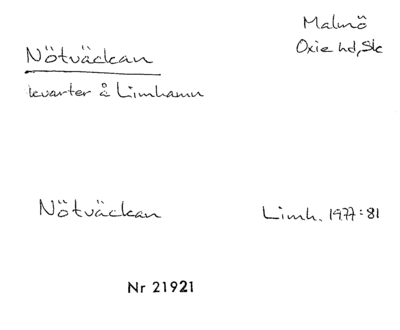 Malmö
Oxie hd, Sk
Nötväckan
kvarter å Limhamn
Nötväckan
Limh. 1977:81
Nr 21921